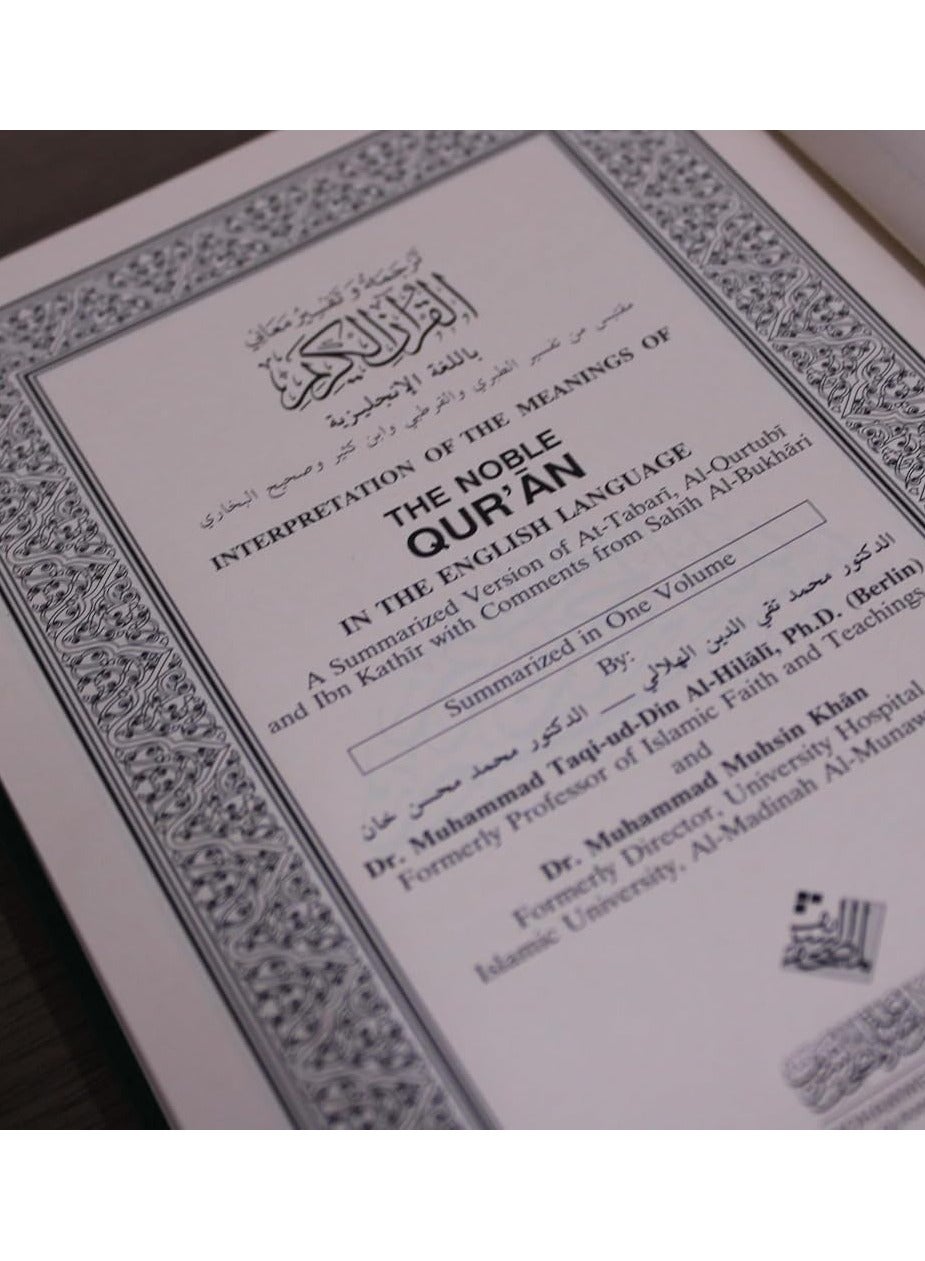 ترجمة و تفسير معاني
القرآن الكريم
باللغة الإنجليزية
مقتبس من تفسير الطبري والقرطبي وابن كثير وصحيح البخاري
INTERPRETATION OF THE MEANINGS OF
THE NOBLE
QUR'ĀN
IN THE ENGLISH LANGUAGE
A Summarized Version of At-Tabarī, Al-Qurtubī
and Ibn Kathīr with Comments from Sahīh Al-Bukhāri
Summarized in One Volume
By:
الدكتور محمد تقي الدين الهلالي — الدكتور محمد محسن خان
Dr. Muhammad Taqi-ud-Din Al-Hilālī, Ph.D. (Berlin)
Formerly Professor of Islamic Faith and Teachings
and
Dr. Muhammad Muhsin Khān
Formerly Director, University Hospital
Islamic University, Al-Madinah Al-Munaw